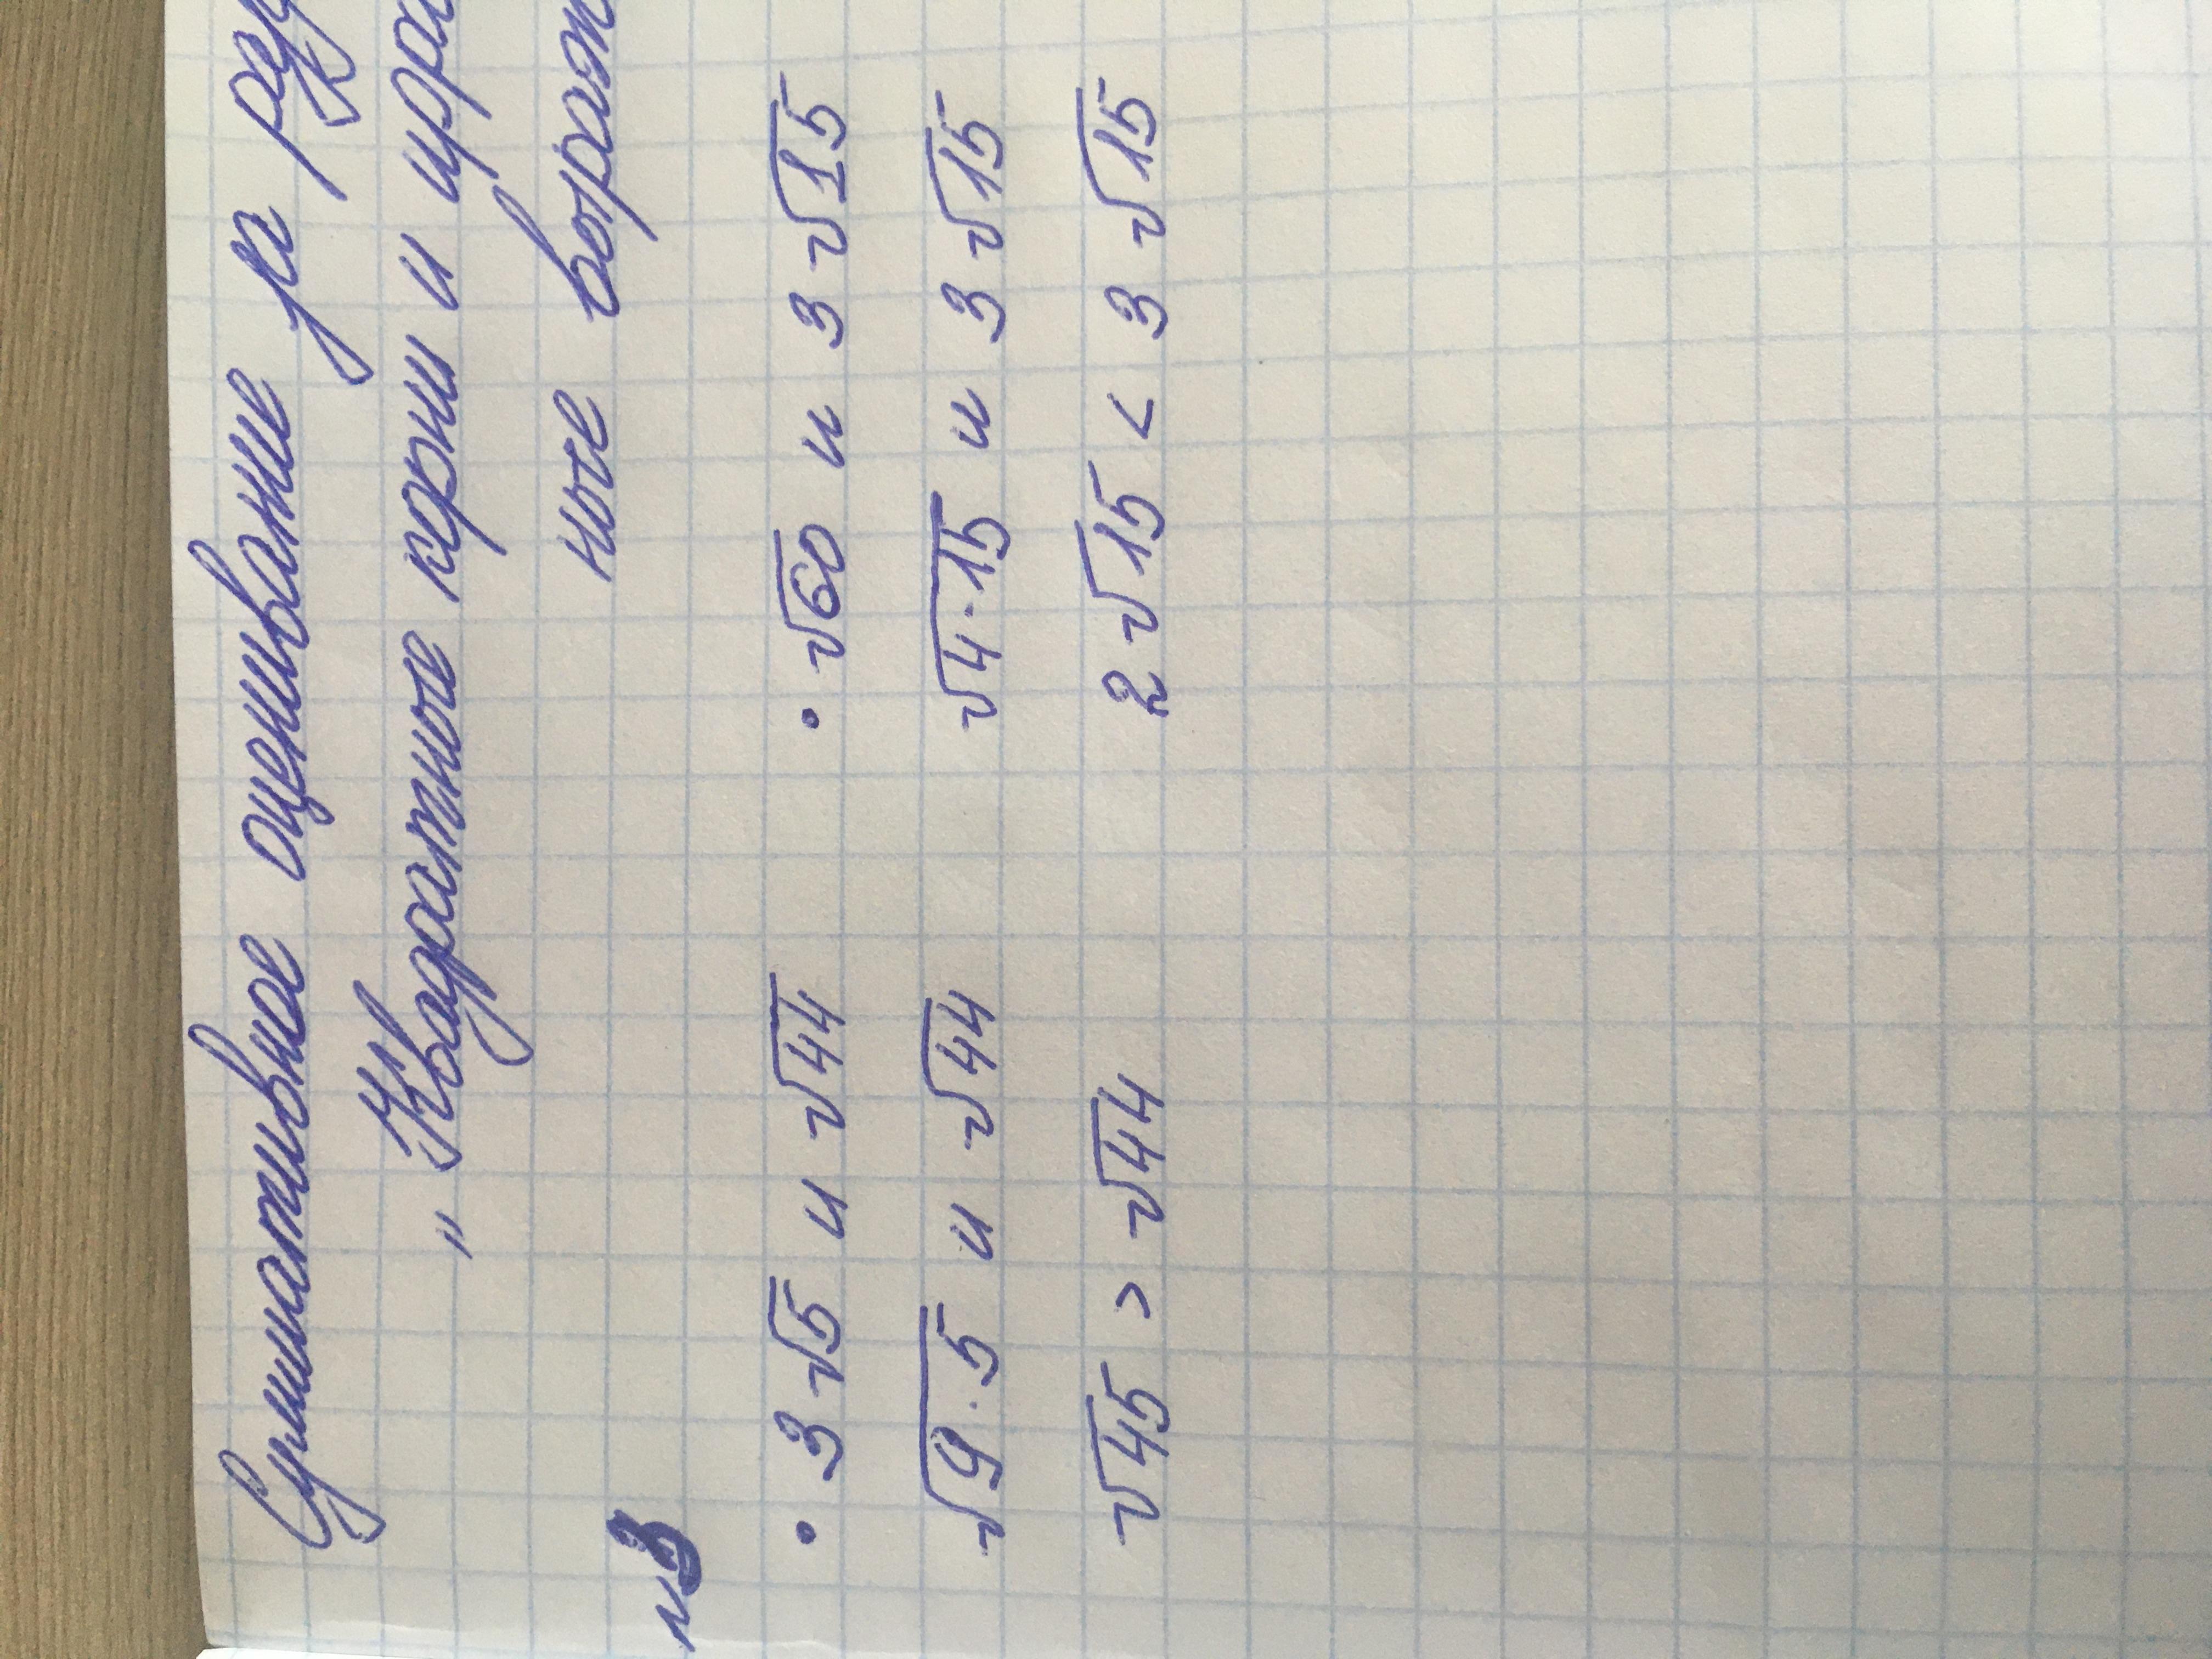 Суммативное оценивание за раз
„Квадратные корни и ирра
ные выраж
№3
• 3√5 и √44 • √60 и 3√15
√9·5 и √44 √4·15 и 3√15
√45 > √44 2√15 < 3√15